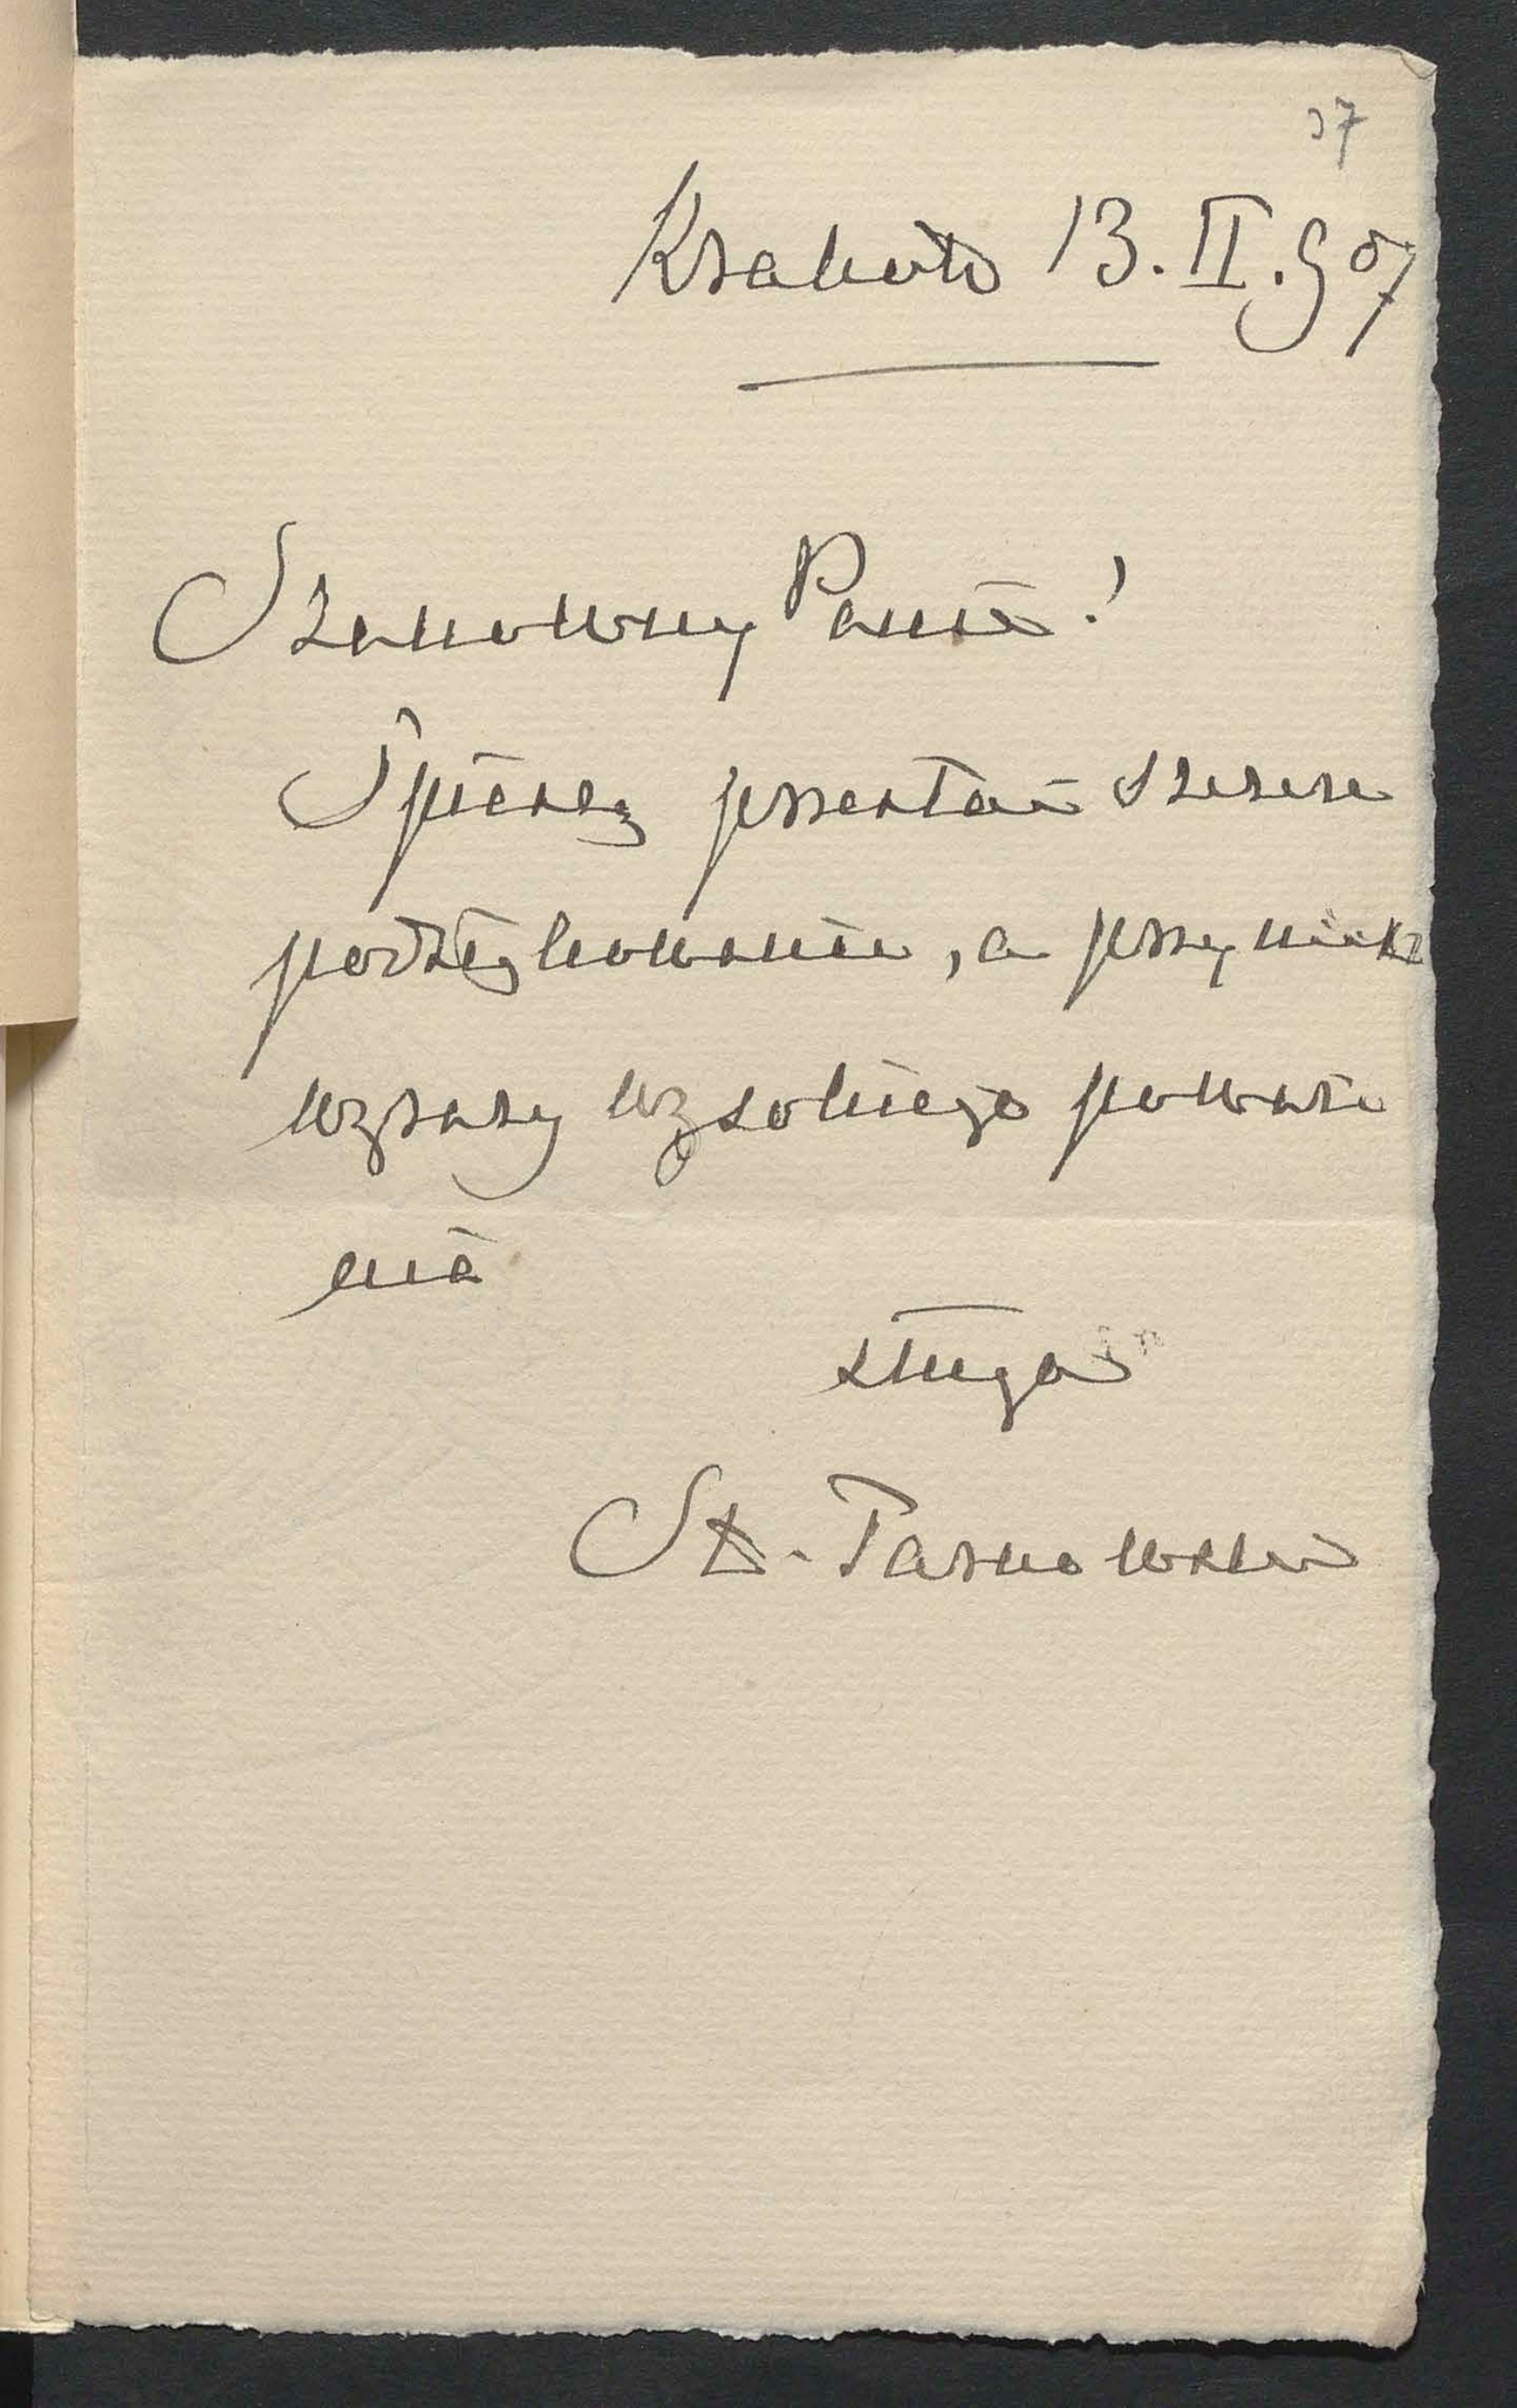 37
Kraków 13. II. 907
Szanowny Panie!
Spieszę przesłać szczere
podziękowanie, a przy nich
wyrazy wysokiego poważa
nia
sługa
St. Tarnowski